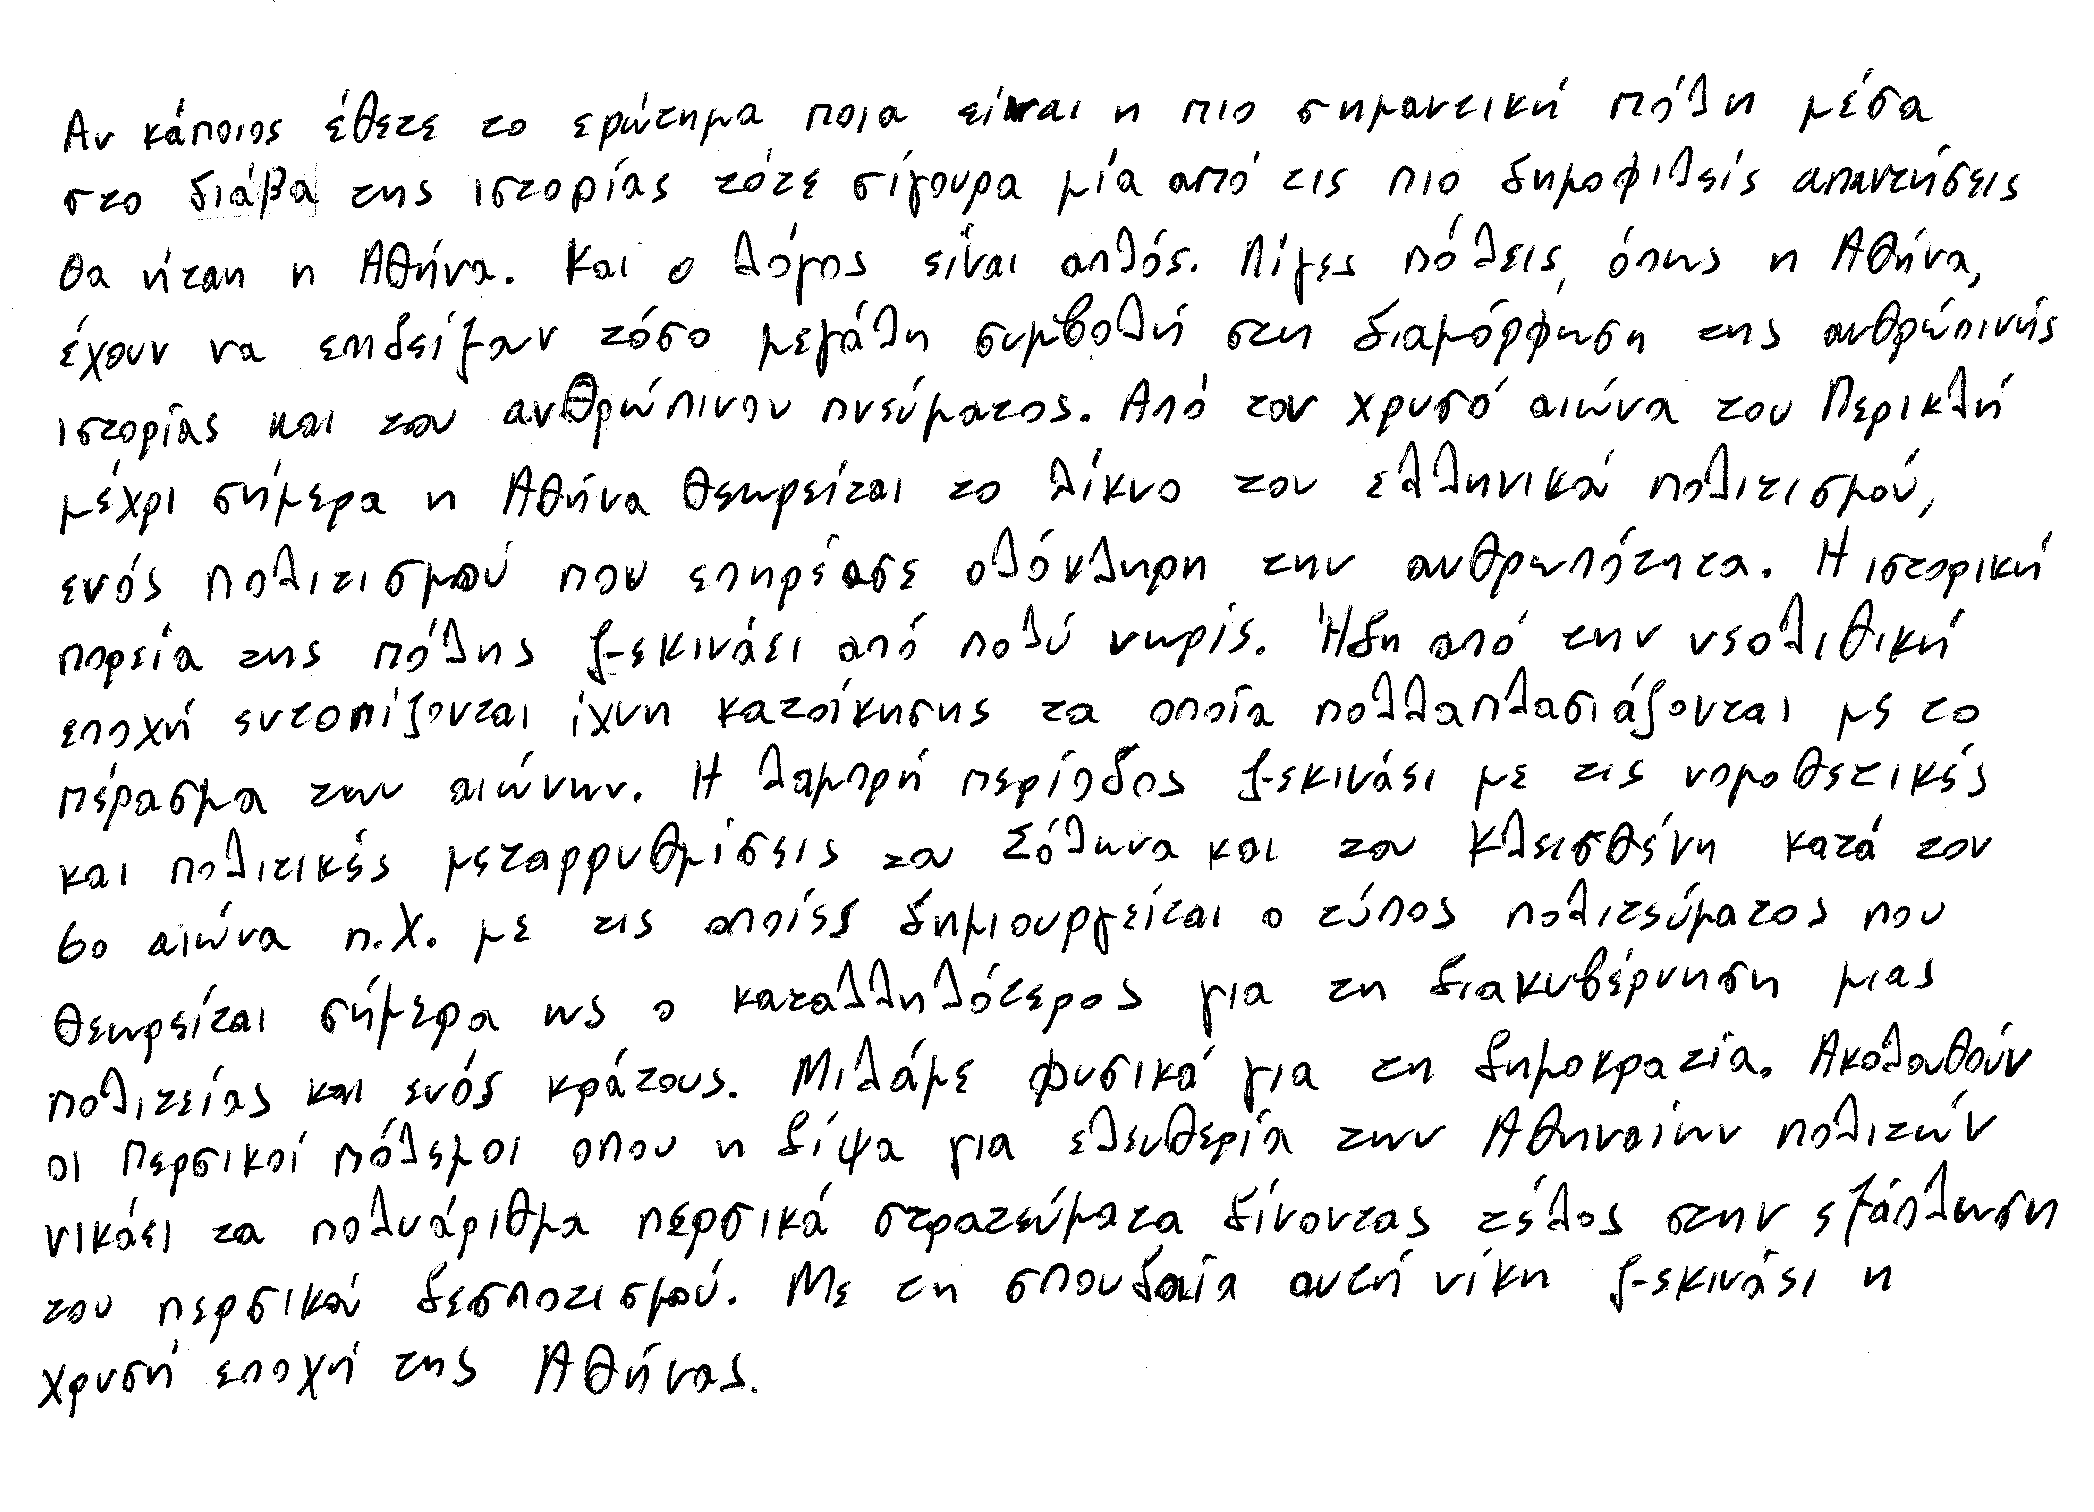 Αν κάποιος έθετε το ερώτημα ποια είναι η πιο σημαντική πόλη μέσα
στο διάβα της ιστορίας τότε σίγουρα μία από τις πιο δημοφιλείς απαντήσεις
θα ήταν η Αθήνα. Και ο λόγος είναι απλός. Λίγες πόλεις, όπως η Αθήνα,
έχουν να επιδείξουν τόσο μεγάλη συμβολή στη διαμόρφωση της ανθρώπινής
ιστορίας και του ανθρώπινου πνεύματος. Από τον χρυσό αιώνα του Περικλή
μέχρι σήμερα η Αθήνα θεωρείται το λίκνο του ελληνικού πολιτισμού,
ενός πολιτισμού που επηρέασε ολόκληρη την ανθρωπότητα. Η ιστορική
πορεία της πόλης ξεκινάει από πολύ νωρίς. Ήδη από την νεολιθική
εποχή εντοπίζονται ίχνη κατοίκησης τα οποία πολλαπλασιάζονται με το
πέρασμα των αιώνων. Η λαμπρή περίοδος ξεκινάει με τις νομοθετικές
και πολιτικές μεταρρυθμίσεις του Σόλωνα και του Κλεισθένη κατά τον
6ο αιώνα π.Χ. με τις οποίες δημιουργείται ο τύπος πολιτεύματος που
θεωρείται σήμερα ως ο καταλληλότερος για τη διακυβέρνηση μιας
πολιτείας και ενός κράτους. Μιλάμε φυσικά για τη δημοκρατία. Ακολουθούν
οι Περσικοί πόλεμοι οπου η δίψα για ελευθερία των Αθηναίων πολιτών
νικάει τα πολυάριθμα περσικά στρατεύματα δίνοντας τέλος στην εξάπλωση
του περσικού δεσποτισμού. Με τη σπουδαία αυτή νίκη ξεκινάει η
χρυσή εποχή της Αθήνας.